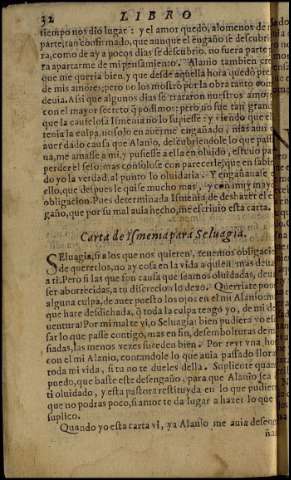 32 LIBRO
tiempo nos dio lugar: y el amor quedò, alomenos de mi
parte, tan confirmado, que aunque el engaño se descubrie
ra, como de ay a pocos dias se descubrio, no fuera parte pa
ra apartarme de mi pensamiento. Alanio tambien creo
que me queria bien, y que desde aquella hora quedò preso
de mis amores; pero no los mostrò por la obra tanto como
deuia. Assi que algunos dias se trataron nuestros amores
con el mayor secreto q̃ pudimos: pero no fue tan grande,
que la cautelosa Ismenia no lo supiesse: y viendo que ella
tenia la culpa, no solo en auerme engañado, mas aun en
auer dado causa que Alanio, descubriendole lo que passa
ua, me amasse a mi, y pusiesse a ella en oluido, estuuo para
perder el seso; mas consolose con parecerle, que en sabien
do yo la verdad, al punto lo oluidaria. Y engañauase en
ello, que despues le quise mucho mas, y con muy mayor
obligacion. Pues determinada Ismenia de deshazer el en
gaño, que por su mal auia hecho, me escriuio esta carta.
Carta de Ismenia para Seluagia.
SEluagia, si a los que nos quieren, tenemos obligacion
de quererlos, no ay cosa en la vida a quien mas deua q̃
a ti. Pero si las que son causa que seamos oluidadas, deuen
ser aborrecidas, a tu discrecion lo dexo. Querriate poner
alguna culpa, de auer puesto los ojos en el mi Alanio: mas
que hare desdichada, q̃ toda la culpa tengo yo, de mi des-
uentura? Por mi mal te vi, o Seluagia: bien pudiera yo escu
sar lo que passe contigo, mas en fin, desembolturas dema
siadas, las menos vezes suceden bien. Por reyr vna hora
con el mi Alanio, contandole lo que auia passado llorarè
toda mi vida, si tu no te dueles della. Suplicote quanto
puedo, que baste este desengaño, para que Alanio sea de
ti oluidado, y esta pastora restituyda en lo que pudieres,
que no podras poco, si amor te da lugar a hazer lo que te
suplico.
Quando yo esta carta vi, ya Alanio me auia desenga-
ña